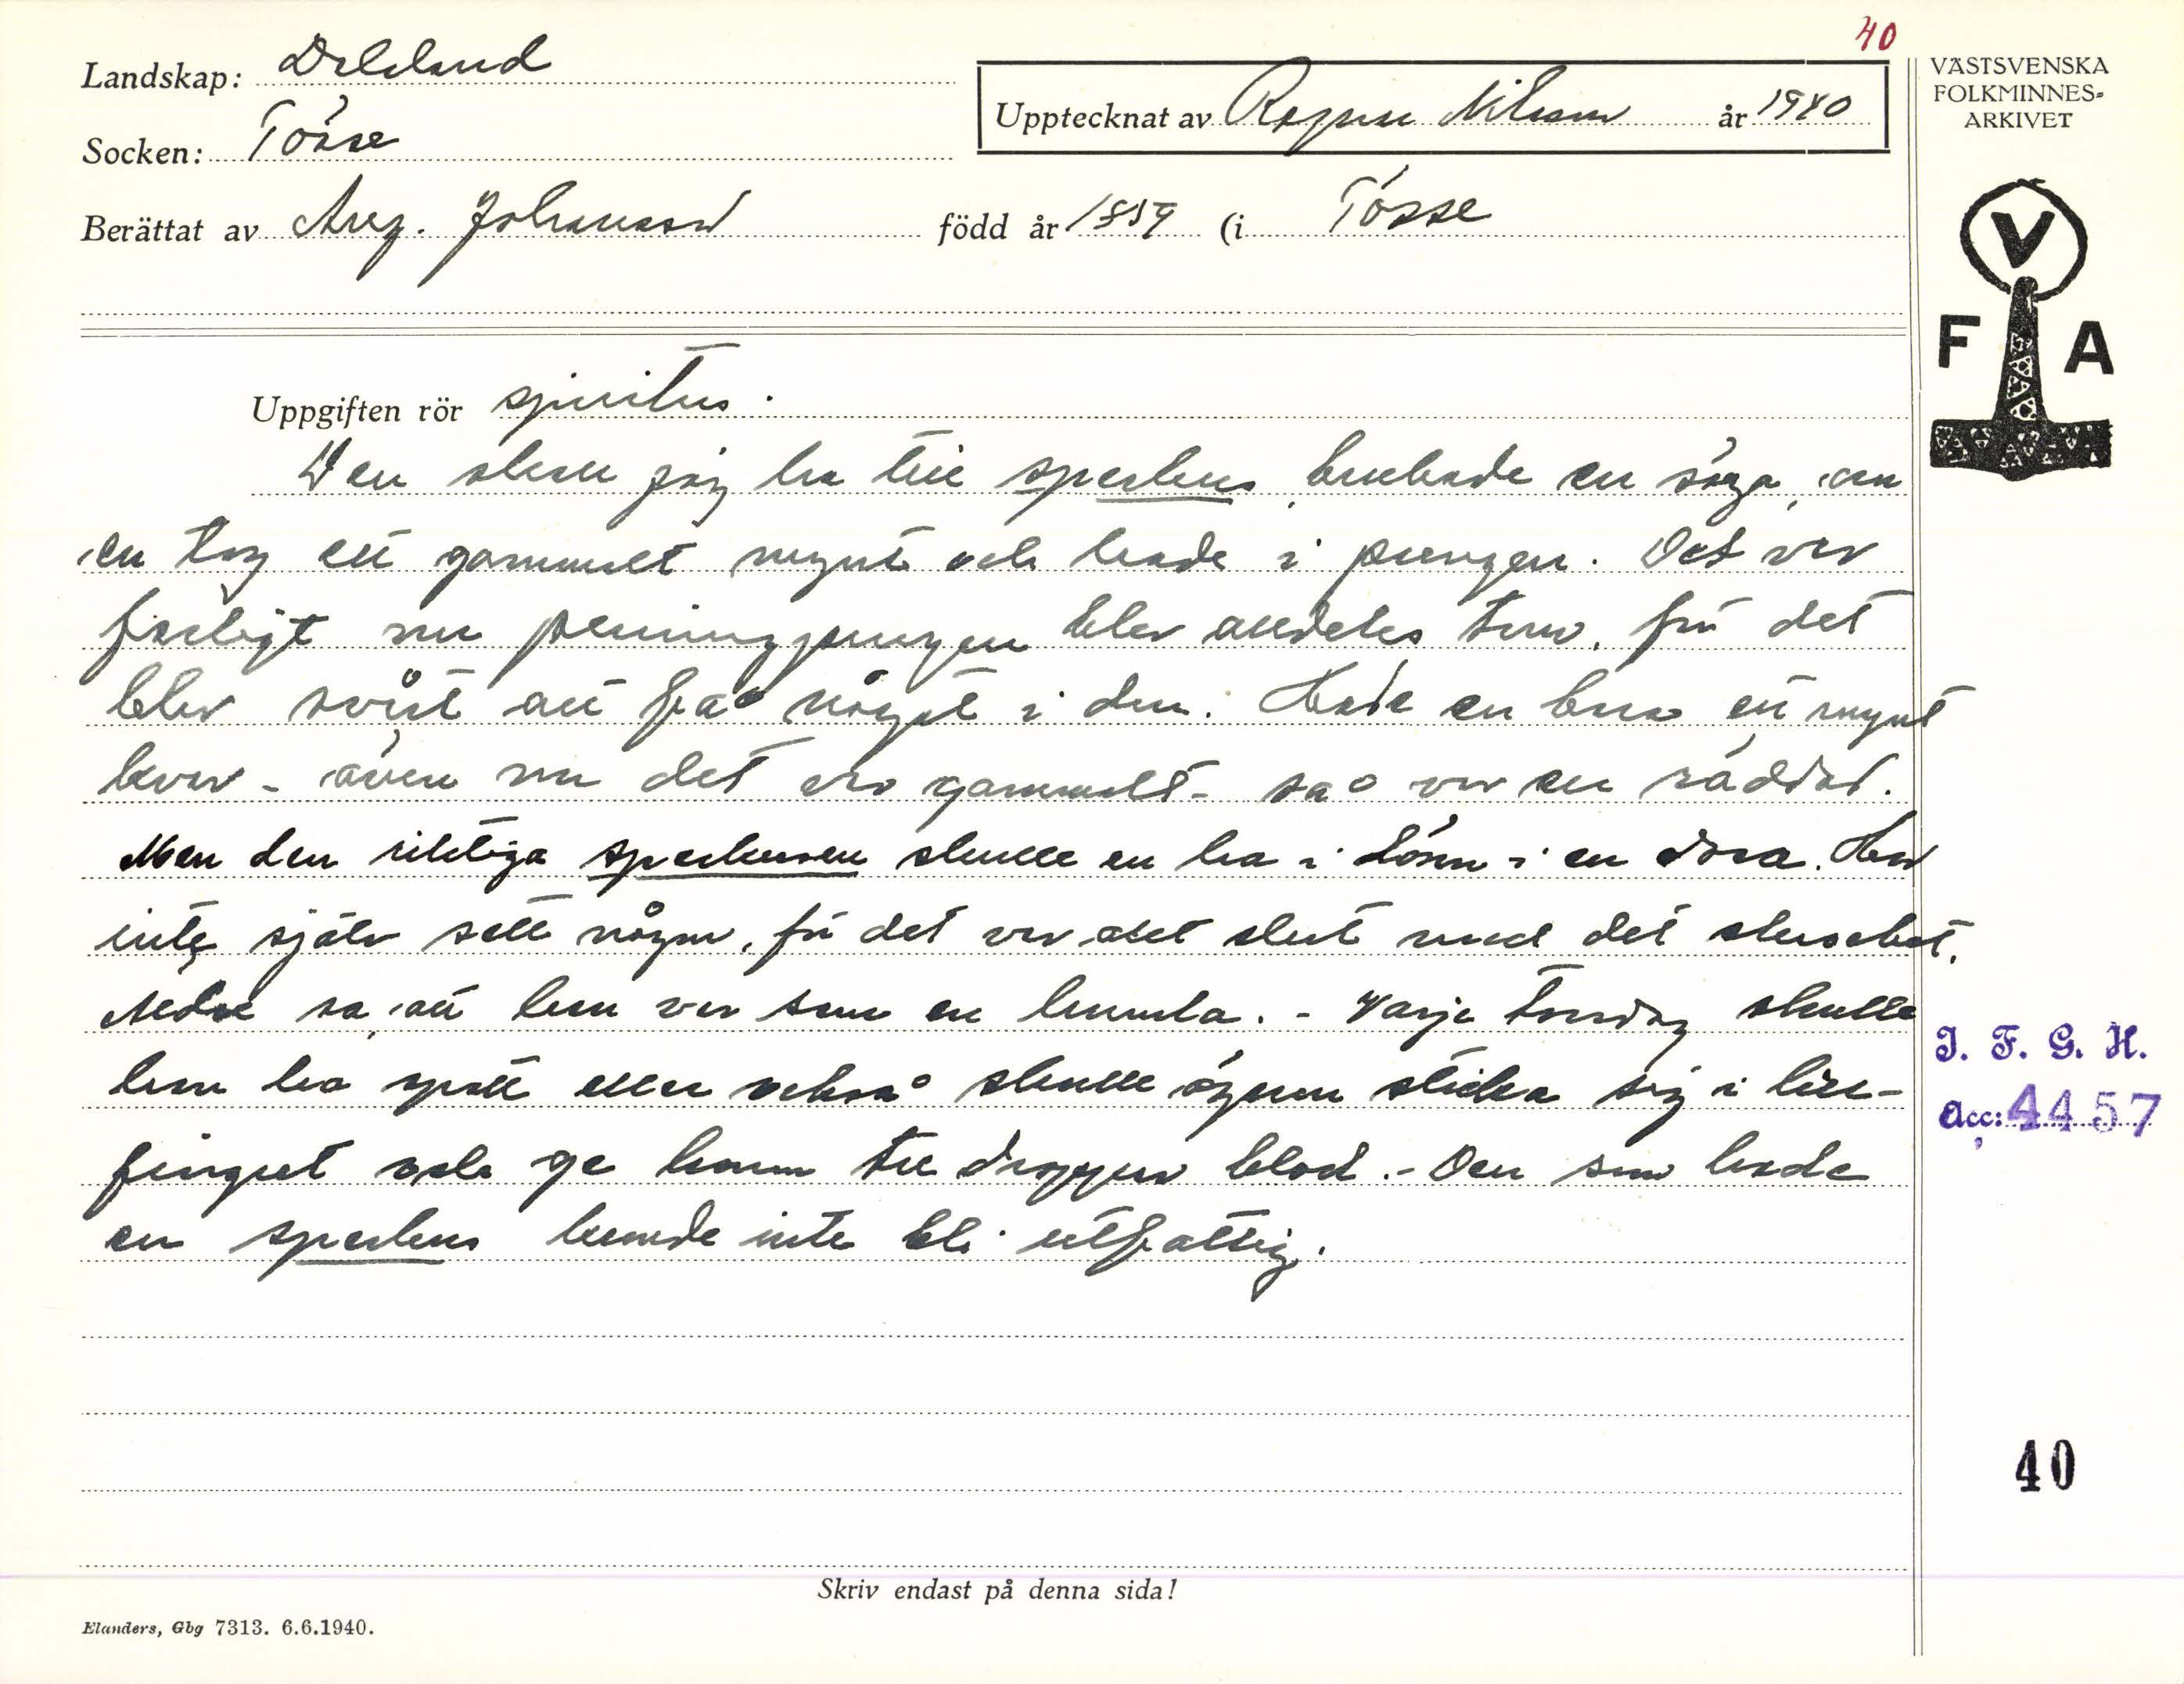 40
Landskap: Dalsland
Upptecknat av Ragnar Nilsson år 1940
Socken: Tösse
Berättat av Aug. Johansson född år 1859 (i Tösse
VÄSTSVENSKA
FOLKMINNES-
ARKIVET
V
F A
Uppgiften rör spiritus.
Den skam jag ha till spertus, brukade en säga, om
en tog ett gammalt mynt och hade i pungen. Det var
farligt om penningpungen blev alldeles tom, för det
blev svårt att få något i den. Hade en bara ett mynt
kvar - även om det var gammalt - så var en räddad.
Men den riktiga spertusen skulle en ha i lönn i en dosa. Har
inte själv sett någon, för det var allt slut med det sluskt.
sa, att han var som en humla. - Varje torsdag skulle
han ha spott eller också skulle ägaren sticka sig i lill-
fingret och ge honom tre droppar blod. - Den som hade
en spertus kunde inte bli utfattig.
I. F. G. H.
Acc: 4457
40
Skriv endast på denna sida!
Elanders, Gbg 7313. 6.6.1940.